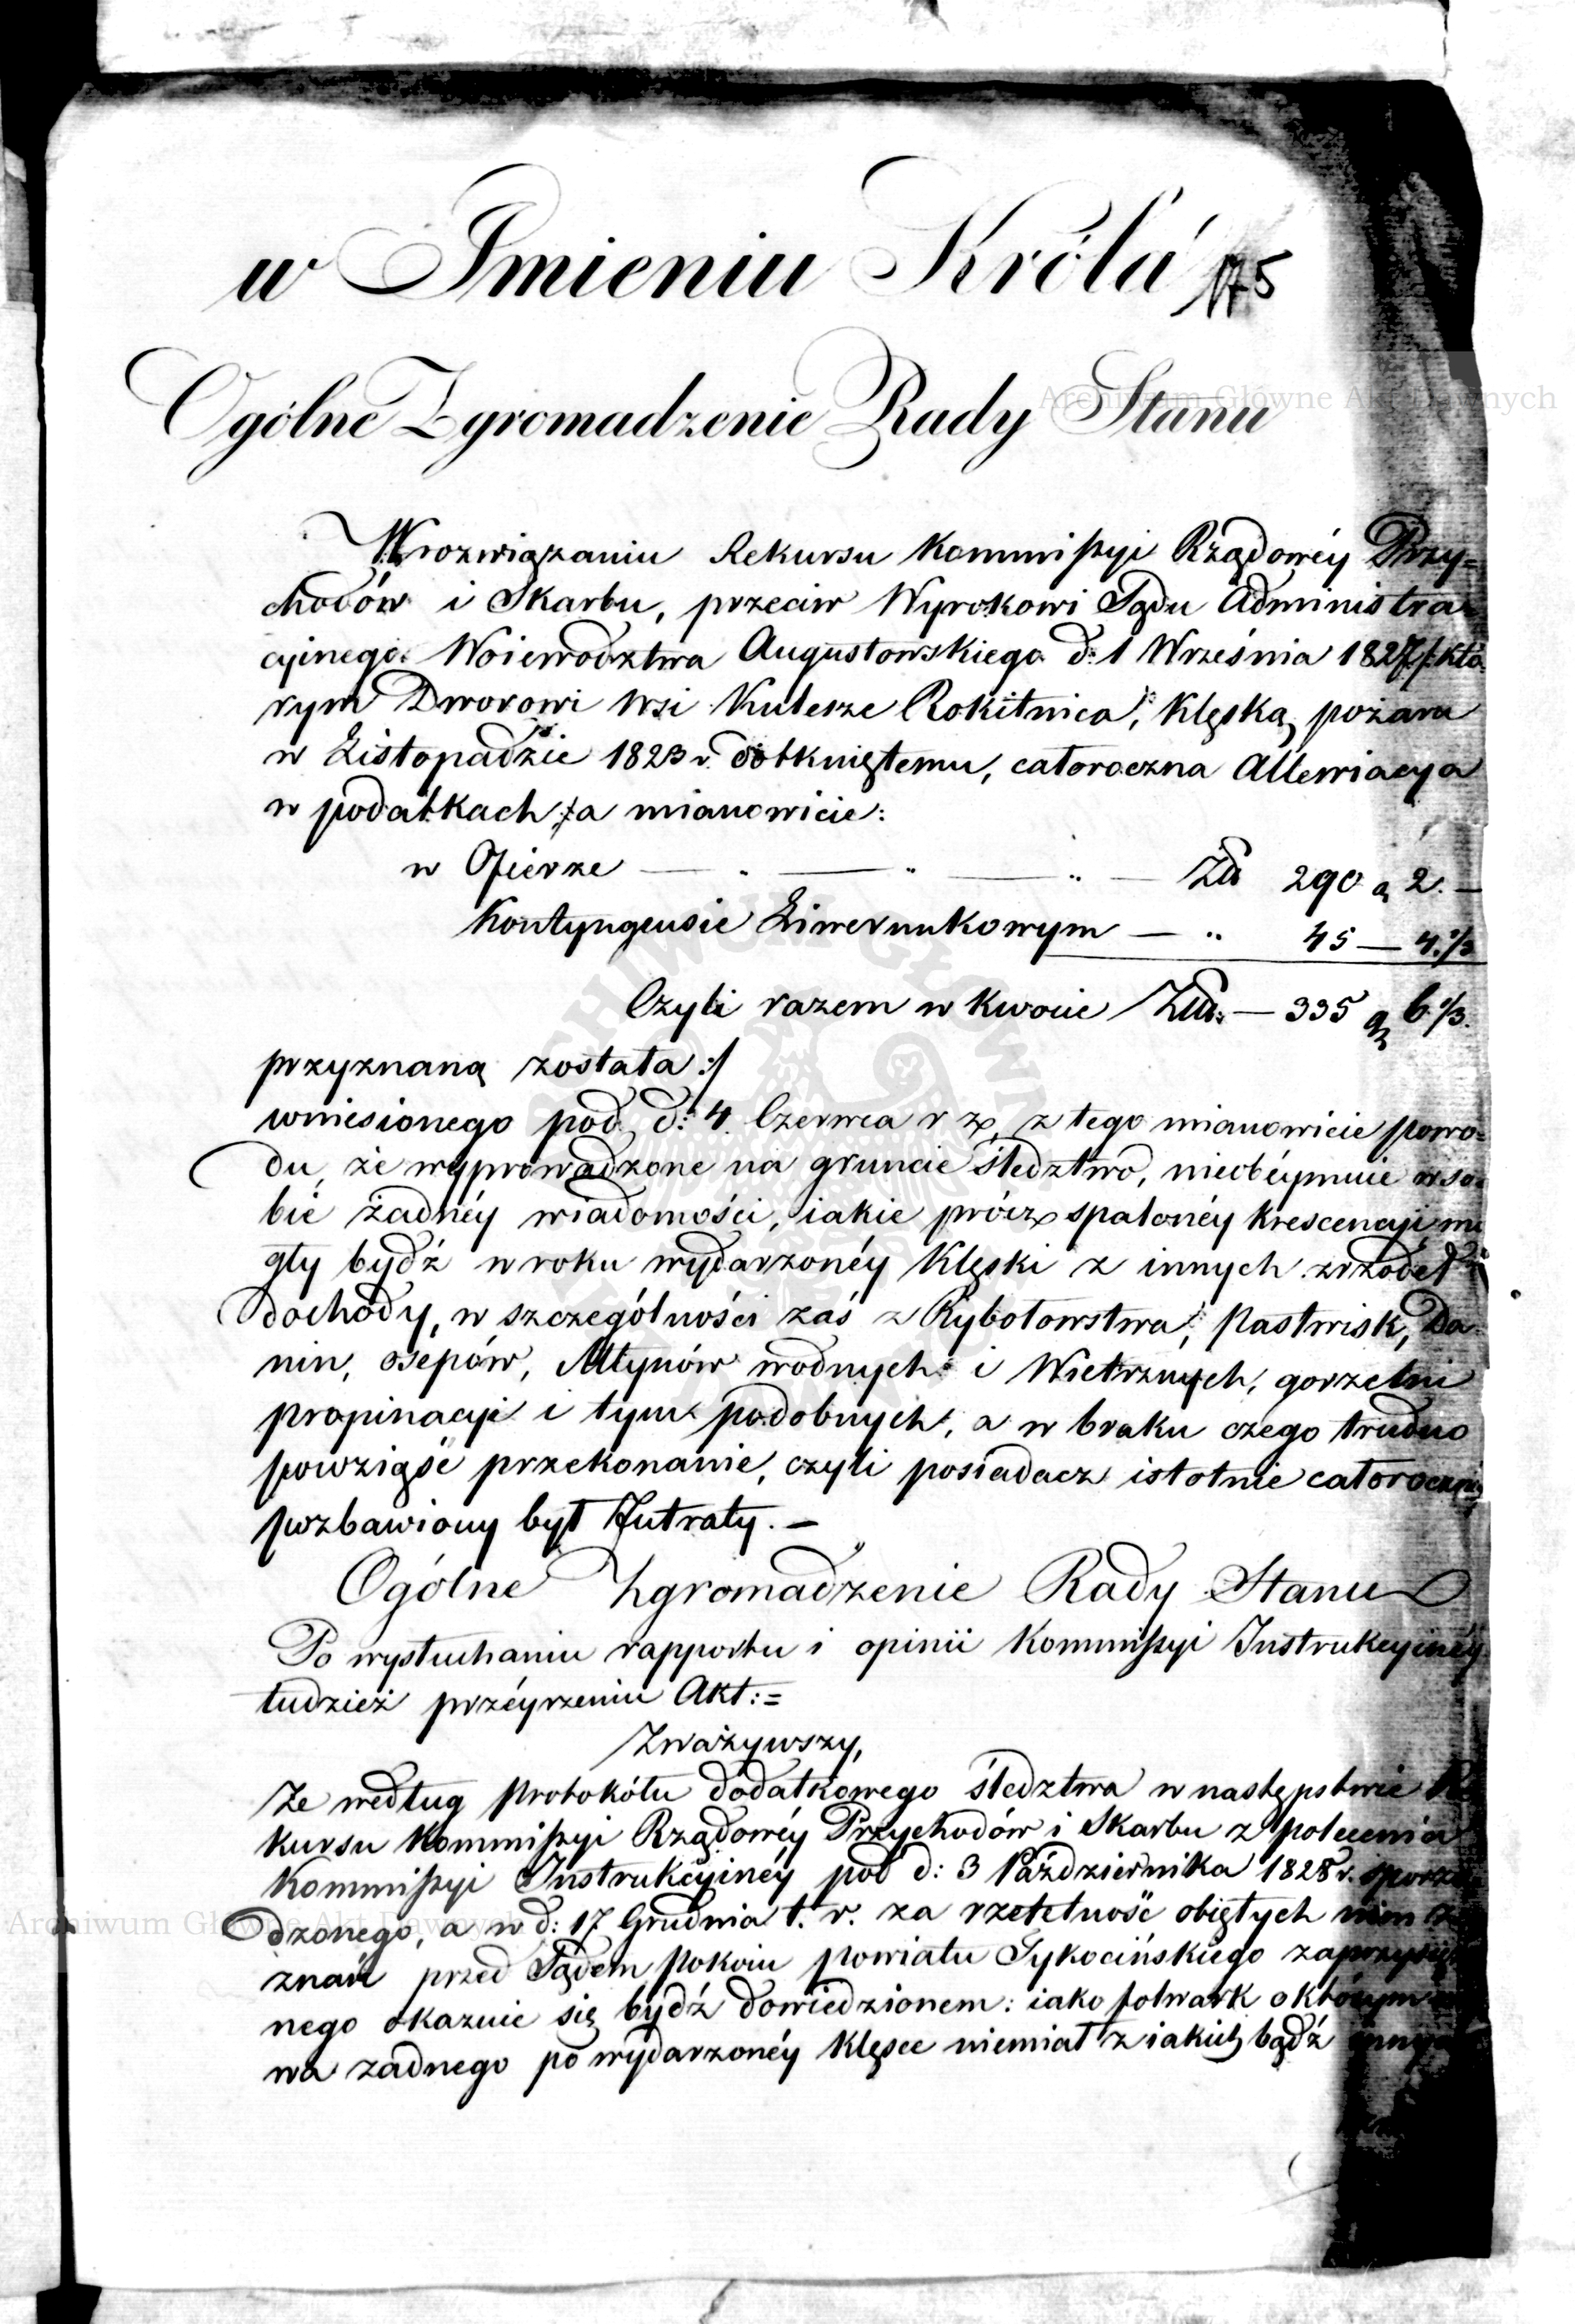 w Jmieniu Króla 175
Ogólne Zgromadzenie Rady Stanu
W rozwiązaniu Rekursu Kommissyi Rządowéy Przy=
chodów i Skarbu, przeciw Wyrokowi Sądu Administra=
cyinego Woiewodztwa Augustowskiego d: 1 Września 1827 /: któ
rym Dworowi Wsi Kulesze Rokitnica, klęską pożaru
w Listopadzie 1823 r. dotkniętemu, całoroczna Allewiacya
w podatkach, a mianowicie:
w Ofierze — „ — „ — Zł 290 g 2. —
Kontyngensie Liwerunkowym — „ 45 — 4.1/3
Czyli razem w kwocie Złł. — 335 g 6 1/3.
przyznaną została :/
wniesionego pod d: 4 Czerwca r z z tego mianowicie powo=
du, że wyprowadzone na gruncie śledztwo, nieobéymuie w so=
bie żadnéy wiadomości, iakie prócz spalonéy krescencyi, mo
gły bydź w roku wydarzonéy klęski z innych zrzódeł
dochody, w szczególności zaś z Rybołowstwa, Pastwisk, Da=
nin, osepów, Młynów wodnych i Wietrznych, gorzelni
propinacyi i tym podobnych, a w braku czego trudno
powziąść przekonanie, czyli posiadacz istotnie całorocznéy
pozbawiony był Jutraty. —
Ogólne Zgromadzenie Rady Stanu
Po wysłuchaniu rapportu i opinii Kommissyi Instrukcyinéy
tudzież przéyrzeniu Akt: =
Zważywszy,
Że według Protokółu dodatkowego śledztwa w następstwie Re
kursu Kommissyi Rządowéy Przychodów i Skarbu z polecenia
Kommissyi Instrukcyinéy pod d: 3 Października 1828 r. sporzą
dzonego, a w d: 17 Grudnia t. r. za rzetelność obiętych nim ze
znań przed Sądem Pokoiu Powiatu Tykocińskiego zaprzysię
nego okazuie się bydź dowiedzionem: iako folwark o którym mo
wa żadnego po wydarzonéy klęsce niemiał z iakich bądź innych
Archiwum Główne Akt Dawnych
Archiwum Główne Akt Dawnych